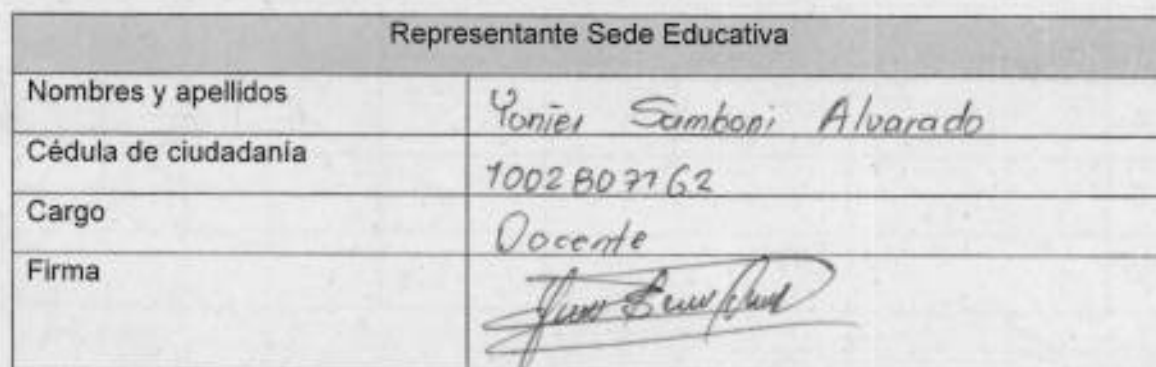 Representante Sede Educativa
Nombres y apellidos Yonier Samboni Alvarado
Cédula de ciudadanía 1002807762
Cargo Docente
Firma